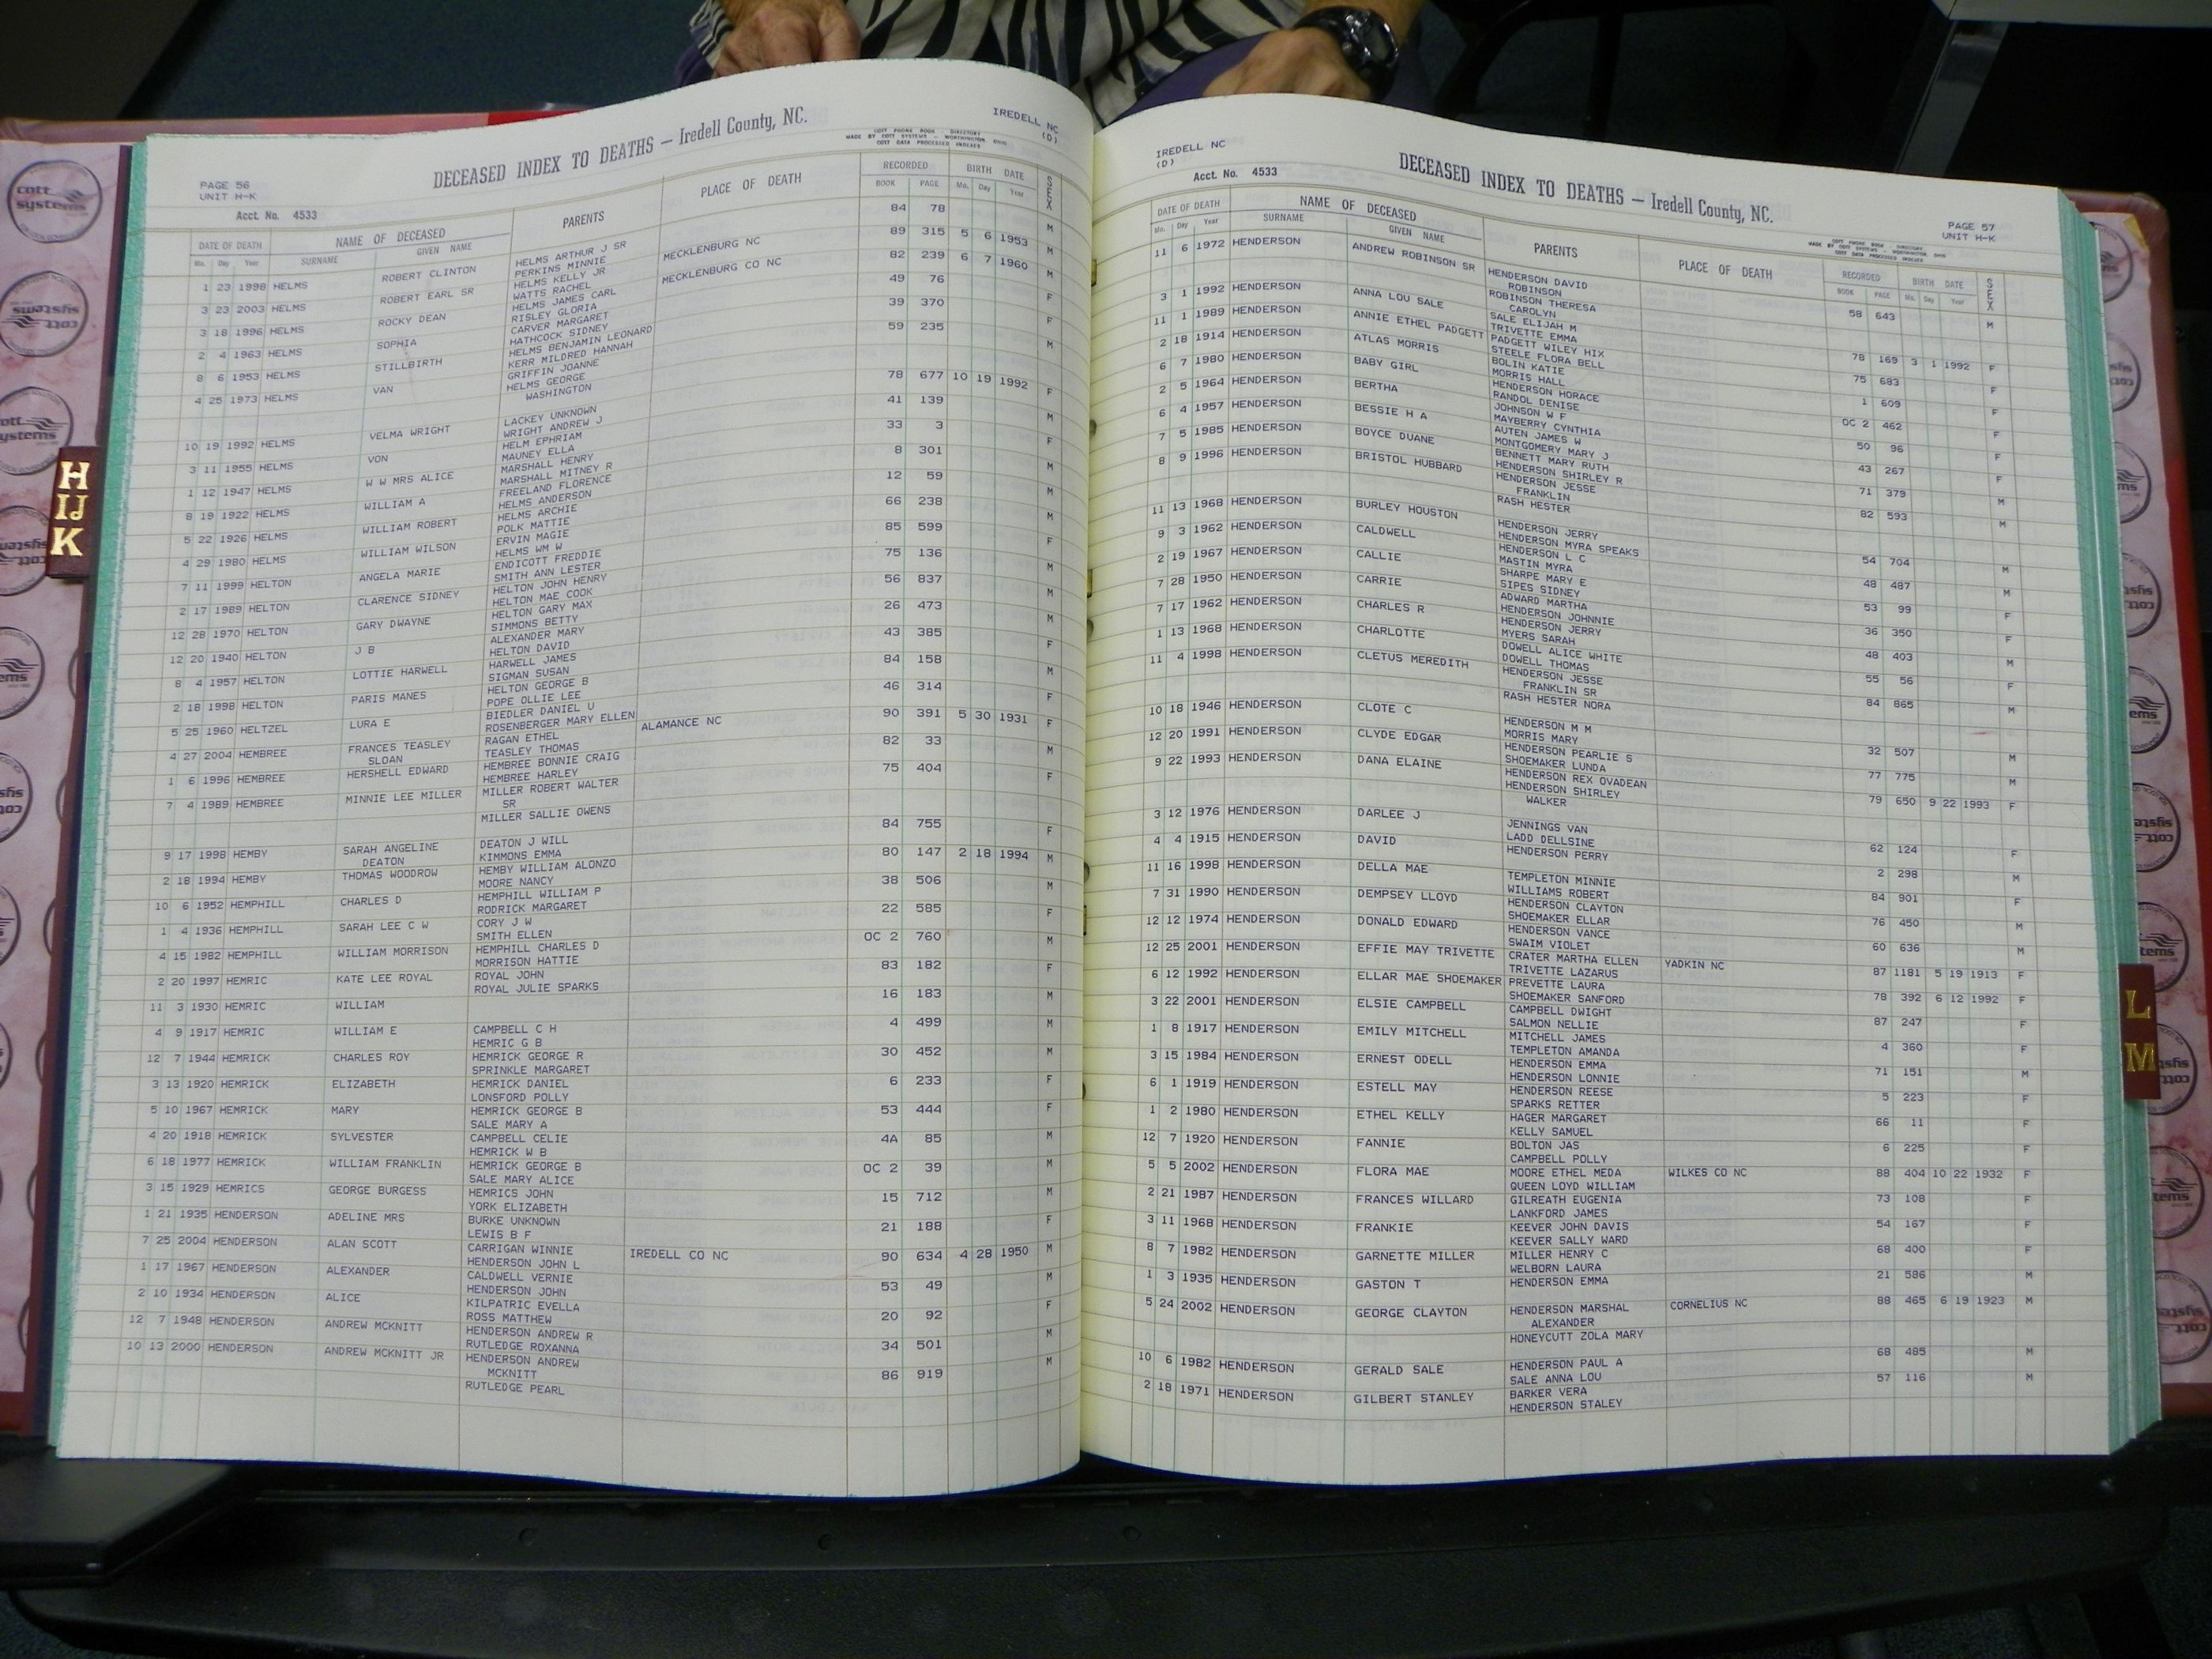 IREDELL NC
(D)
DECEASED INDEX TO DEATHS — Iredell County, NC.
COTT PHONE BOOK - DIRECTORY
MADE BY COTT SYSTEMS - WORTHINGTON, OHIO
COTT DATA PROCESSED INDEXES
PAGE 56
UNIT H-K
Acct. No. 4533
DATE OF DEATH NAME OF DECEASED PARENTS PLACE OF DEATH RECORDED BIRTH DATE SEX
Mo. Day Year SURNAME GIVEN NAME BOOK PAGE Mo. Day Year
1 23 1998 HELMS ROBERT CLINTON HELMS ARTHUR J SR 84 78 M
PERKINS MINNIE
3 23 2003 HELMS ROBERT EARL SR HELMS KELLY JR MECKLENBURG NC 89 315 5 6 1953 M
WATTS RACHEL
3 18 1996 HELMS ROCKY DEAN HELMS JAMES CARL MECKLENBURG CO NC 82 239 6 7 1960 M
RISLEY GLORIA
2 4 1963 HELMS SOPHIA CARVER MARGARET 49 76 F
HATHCOCK SIDNEY
8 6 1953 HELMS STILLBIRTH HELMS BENJAMIN LEONARD 39 370 F
KERR MILDRED HANNAH
4 25 1973 HELMS VAN GRIFFIN JOANNE 59 235 M
HELMS GEORGE
WASHINGTON
10 19 1992 HELMS VELMA WRIGHT LACKEY UNKNOWN 78 677 10 19 1992 F
WRIGHT ANDREW J
3 11 1955 HELMS VON HELM EPHRIAM 41 139 M
MAUNEY ELLA
1 12 1947 HELMS W W MRS ALICE MARSHALL HENRY 33 3 F
MARSHALL MITNEY R
8 19 1922 HELMS WILLIAM A FREELAND FLORENCE 8 301 M
HELMS ANDERSON
5 22 1926 HELMS WILLIAM ROBERT HELMS ARCHIE 12 59 M
POLK MATTIE
4 29 1980 HELMS WILLIAM WILSON ERVIN MAGIE 66 238 M
HELMS WM W
7 11 1999 HELTON ANGELA MARIE ENDICOTT FREDDIE 85 599 F
SMITH ANN LESTER
2 17 1989 HELTON CLARENCE SIDNEY HELTON JOHN HENRY 75 136 M
HELTON MAE COOK
12 28 1970 HELTON GARY DWAYNE HELTON GARY MAX 56 837 M
SIMMONS BETTY
12 20 1940 HELTON J B ALEXANDER MARY 26 473 M
HELTON DAVID
8 4 1957 HELTON LOTTIE HARWELL HARWELL JAMES 43 385 F
SIGMAN SUSAN
2 18 1998 HELTON PARIS MANES HELTON GEORGE B 84 158 M
POPE OLLIE LEE
5 25 1960 HELTZEL LURA E BIEDLER DANIEL U 46 314 F
ROSENBERGER MARY ELLEN
4 27 2004 HEMBREE FRANCES TEASLEY RAGAN ETHEL ALAMANCE NC 90 391 5 30 1931 F
SLOAN TEASLEY THOMAS
1 6 1996 HEMBREE HERSHELL EDWARD HEMBREE BONNIE CRAIG 82 33 M
HEMBREE HARLEY
7 4 1989 HEMBREE MINNIE LEE MILLER MILLER ROBERT WALTER 75 404 F
SR
MILLER SALLIE OWENS
9 17 1998 HEMBY SARAH ANGELINE DEATON J WILL 84 755 F
DEATON KIMMONS EMMA
2 18 1994 HEMBY THOMAS WOODROW HEMBY WILLIAM ALONZO 80 147 2 18 1994 M
MOORE NANCY
10 6 1952 HEMPHILL CHARLES D HEMPHILL WILLIAM P 38 506 M
RODRICK MARGARET
1 4 1936 HEMPHILL SARAH LEE C W CORY J W 22 585 F
SMITH ELLEN
4 15 1982 HEMPHILL WILLIAM MORRISON HEMPHILL CHARLES D OC 2 760 M
MORRISON HATTIE
2 20 1997 HEMRIC KATE LEE ROYAL ROYAL JOHN 83 182 F
ROYAL JULIE SPARKS
11 3 1930 HEMRIC WILLIAM 16 183 M
4 9 1917 HEMRIC WILLIAM E CAMPBELL C H 4 499 M
HEMRIC G B
12 7 1944 HEMRICK CHARLES ROY HEMRICK GEORGE R 30 452 M
SPRINKLE MARGARET
3 13 1920 HEMRICK ELIZABETH HEMRICK DANIEL 6 233 F
LONSFORD POLLY
5 10 1967 HEMRICK MARY HEMRICK GEORGE B 53 444 F
SALE MARY A
4 20 1918 HEMRICK SYLVESTER CAMPBELL CELIE 4A 85 M
HEMRICK W B
6 18 1977 HEMRICK WILLIAM FRANKLIN HEMRICK GEORGE B OC 2 39 M
SALE MARY ALICE
3 15 1929 HEMRICS GEORGE BURGESS HEMRICS JOHN 15 712 M
YORK ELIZABETH
1 21 1935 HENDERSON ADELINE MRS BURKE UNKNOWN 21 188 F
LEWIS B F
7 25 2004 HENDERSON ALAN SCOTT CARRIGAN WINNIE IREDELL CO NC 90 634 4 28 1950 M
HENDERSON JOHN L
1 17 1967 HENDERSON ALEXANDER CALDWELL VERNIE 53 49 M
HENDERSON JOHN
2 10 1934 HENDERSON ALICE KILPATRIC EVELLA 20 92 F
ROSS MATTHEW
12 7 1948 HENDERSON ANDREW MCKNITT HENDERSON ANDREW R 34 501 M
RUTLEDGE ROXANNA
10 13 2000 HENDERSON ANDREW MCKNITT JR HENDERSON ANDREW 86 919 M
MCKNITT
RUTLEDGE PEARL
IREDELL NC
(D)
Acct. No. 4533
DECEASED INDEX TO DEATHS — Iredell County, NC.
PAGE 57
UNIT H-K
COTT PHONE BOOK - DIRECTORY
MADE BY COTT SYSTEMS - WORTHINGTON, OHIO
COTT DATA PROCESSED INDEXES
DATE OF DEATH NAME OF DECEASED PARENTS PLACE OF DEATH RECORDED BIRTH DATE SEX
Mo. Day Year SURNAME GIVEN NAME BOOK PAGE Mo. Day Year
11 6 1972 HENDERSON ANDREW ROBINSON SR HENDERSON DAVID 58 643 M
ROBINSON
ROBINSON THERESA
CAROLYN
3 1 1992 HENDERSON ANNA LOU SALE SALE ELIJAH M 78 169 3 1 1992 F
TRIVETTE EMMA
11 1 1989 HENDERSON ANNIE ETHEL PADGETT PADGETT WILEY HIX 75 683 F
STEELE FLORA BELL
2 18 1914 HENDERSON ATLAS MORRIS BOLIN KATIE 1 609 F
MORRIS HALL
6 7 1980 HENDERSON BABY GIRL HENDERSON HORACE OC 2 462 F
RANDOL DENISE
2 5 1964 HENDERSON BERTHA JOHNSON W F 50 96 F
MAYBERRY CYNTHIA
6 4 1957 HENDERSON BESSIE H A AUTEN JAMES W 43 267 F
MONTGOMERY MARY J
7 5 1985 HENDERSON BOYCE DUANE BENNETT MARY RUTH 71 379 M
HENDERSON SHIRLEY R
8 9 1996 HENDERSON BRISTOL HUBBARD HENDERSON JESSE 82 593 M
FRANKLIN
RASH HESTER
11 13 1968 HENDERSON BURLEY HOUSTON HENDERSON JERRY 54 704 M
HENDERSON MYRA SPEAKS
9 3 1962 HENDERSON CALDWELL HENDERSON L C 48 487 M
MASTIN MYRA
2 19 1967 HENDERSON CALLIE SHARPE MARY E 53 99 F
SIPES SIDNEY
7 28 1950 HENDERSON CARRIE ADWARD MARTHA 36 350 F
HENDERSON JOHNNIE
7 17 1962 HENDERSON CHARLES R HENDERSON JERRY 48 403 M
MYERS SARAH
1 13 1968 HENDERSON CHARLOTTE DOWELL ALICE WHITE 55 56 F
DOWELL THOMAS
11 4 1998 HENDERSON CLETUS MEREDITH HENDERSON JESSE 84 865 M
FRANKLIN SR
RASH HESTER NORA
10 18 1946 HENDERSON CLOTE C HENDERSON M M 32 507 M
MORRIS MARY
12 20 1991 HENDERSON CLYDE EDGAR HENDERSON PEARLIE S 77 775 M
SHOEMAKER LUNDA
9 22 1993 HENDERSON DANA ELAINE HENDERSON REX OVADEAN 79 650 9 22 1993 F
HENDERSON SHIRLEY
WALKER
3 12 1976 HENDERSON DARLEE J JENNINGS VAN 62 124 F
LADD DELLSINE
4 4 1915 HENDERSON DAVID HENDERSON PERRY 2 298 M
11 16 1998 HENDERSON DELLA MAE TEMPLETON MINNIE 84 901 F
WILLIAMS ROBERT
7 31 1990 HENDERSON DEMPSEY LLOYD HENDERSON CLAYTON 76 450 M
SHOEMAKER ELLAR
12 12 1974 HENDERSON DONALD EDWARD HENDERSON VANCE 60 636 M
SWAIM VIOLET
12 25 2001 HENDERSON EFFIE MAY TRIVETTE CRATER MARTHA ELLEN YADKIN NC 87 1181 5 19 1913 F
TRIVETTE LAZARUS
6 12 1992 HENDERSON ELLAR MAE SHOEMAKER PREVETTE LAURA 78 392 6 12 1992 F
SHOEMAKER SANFORD
3 22 2001 HENDERSON ELSIE CAMPBELL CAMPBELL DWIGHT 87 247 F
SALMON NELLIE
1 8 1917 HENDERSON EMILY MITCHELL MITCHELL JAMES 4 360 F
TEMPLETON AMANDA
3 15 1984 HENDERSON ERNEST ODELL HENDERSON EMMA 71 151 M
HENDERSON LONNIE
6 1 1919 HENDERSON ESTELL MAY HENDERSON REESE 5 223 F
SPARKS RETTER
1 2 1980 HENDERSON ETHEL KELLY HAGER MARGARET 66 11 F
KELLY SAMUEL
12 7 1920 HENDERSON FANNIE BOLTON JAS 6 225 F
CAMPBELL POLLY
5 5 2002 HENDERSON FLORA MAE MOORE ETHEL MEDA WILKES CO NC 88 404 10 22 1932 F
QUEEN LOYD WILLIAM
2 21 1987 HENDERSON FRANCES WILLARD GILREATH EUGENIA 73 108 F
LANKFORD JAMES
3 11 1968 HENDERSON FRANKIE KEEVER JOHN DAVIS 54 167 F
KEEVER SALLY WARD
8 7 1982 HENDERSON GARNETTE MILLER MILLER HENRY C 68 400 F
WELBORN LAURA
1 3 1935 HENDERSON GASTON T HENDERSON EMMA 21 586 M
5 24 2002 HENDERSON GEORGE CLAYTON HENDERSON MARSHAL CORNELIUS NC 88 465 6 19 1923 M
ALEXANDER
HONEYCUTT ZOLA MARY
10 6 1982 HENDERSON GERALD SALE HENDERSON PAUL A 68 485 M
SALE ANNA LOU
2 18 1971 HENDERSON GILBERT STANLEY BARKER VERA 57 116 M
HENDERSON STALEY
H
IJ
K
L
M
cott
systems